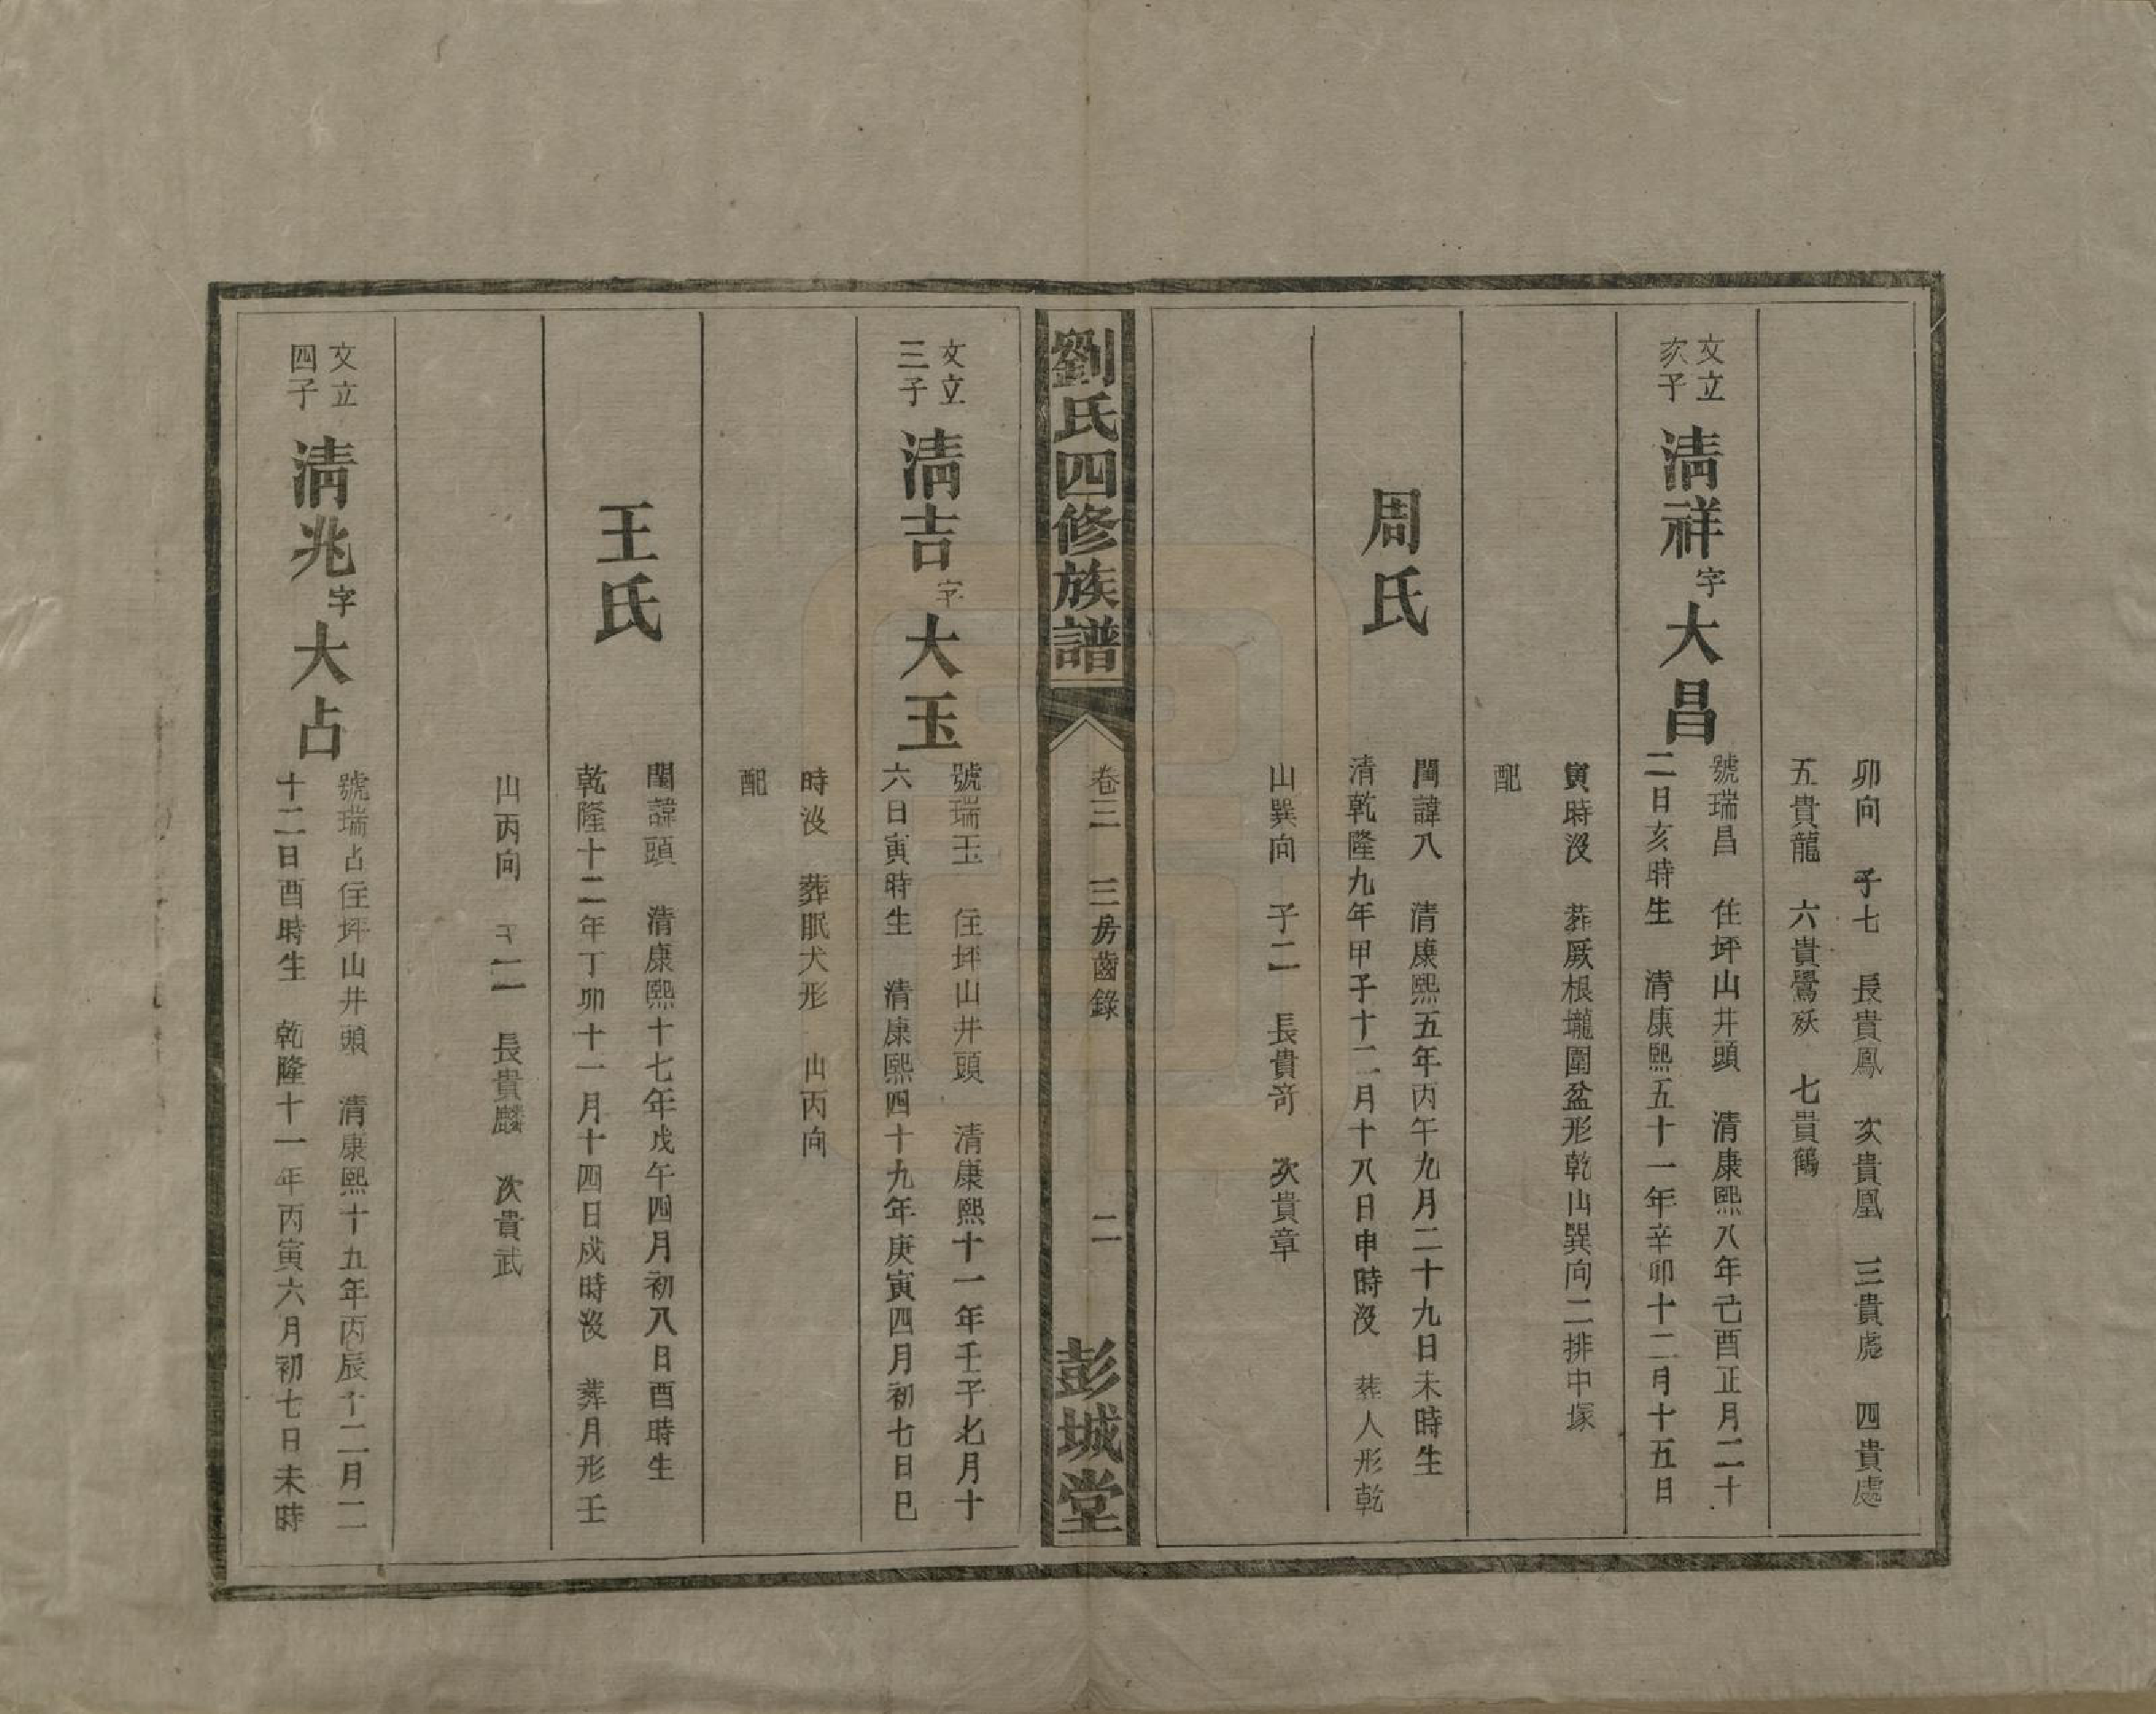 卯向　子七　長貴鳳　次貴凰　三貴彪　四貴處
五貴龍　六貴鷺殀　七貴鶴
文立
次子
清祥字大昌
號瑞昌　住坪山井頭　清康熙八年己酉正月二十
二日亥時生　清康熙五十一年辛卯十二月十五日
寅時沒　葬厥根壠圍盆形乾山巽向二排中塚
配
周氏
閨諱八　清康熙五年丙午九月二十九日未時生
清乾隆九年甲子十二月十八日申時沒　葬人形乾
山巽向　子二　長貴奇　次貴章
劉氏四修族譜
卷三　三房齒錄　二
彭城堂
文立
三子
清吉字大玉
號瑞玉　住坪山井頭　清康熙十一年壬子七月十
六日寅時生　清康熙四十九年庚寅四月初七日巳
時沒　葬眠犬形　山丙向
配
王氏
閨諱頭　清康熙十七年戊午四月初八日酉時生
乾隆十二年丁卯十一月十四日戍時沒　葬月形壬
山丙向　子二　長貴麟　次貴武
文立
四子
清兆字大占
號瑞占住坪山井頭　清康熙十五年丙辰十二月二
十二日酉時生　乾隆十一年丙寅六月初七日未時